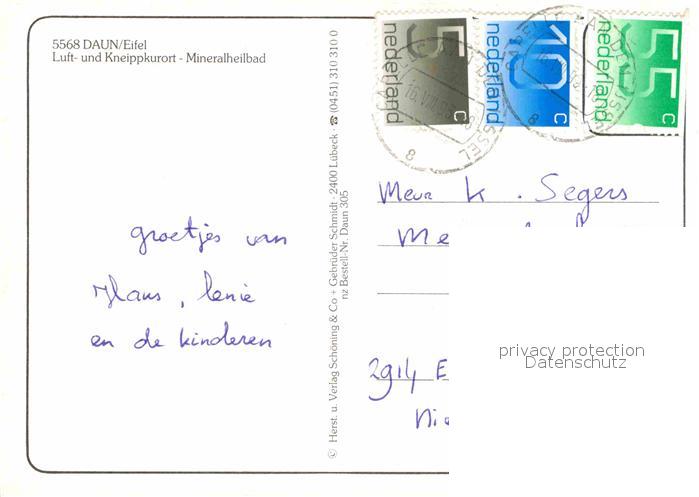 5568 DAUN/Eifel
Luft- und Kneippkurort - Mineralheilbad
5 c nederland
10 c nederland
55 c nederland
groetjes van
Hans, Lenie
en de kinderen
© Herst. u. Verlag Schöning & Co + Gebrüder Schmidt · 2400 Lübeck · ☎ (0451) 310 310 0
nz Bestell-Nr. Daun 305
Meur K. Segers
Me
2914 E
privacy protection
Datenschutz